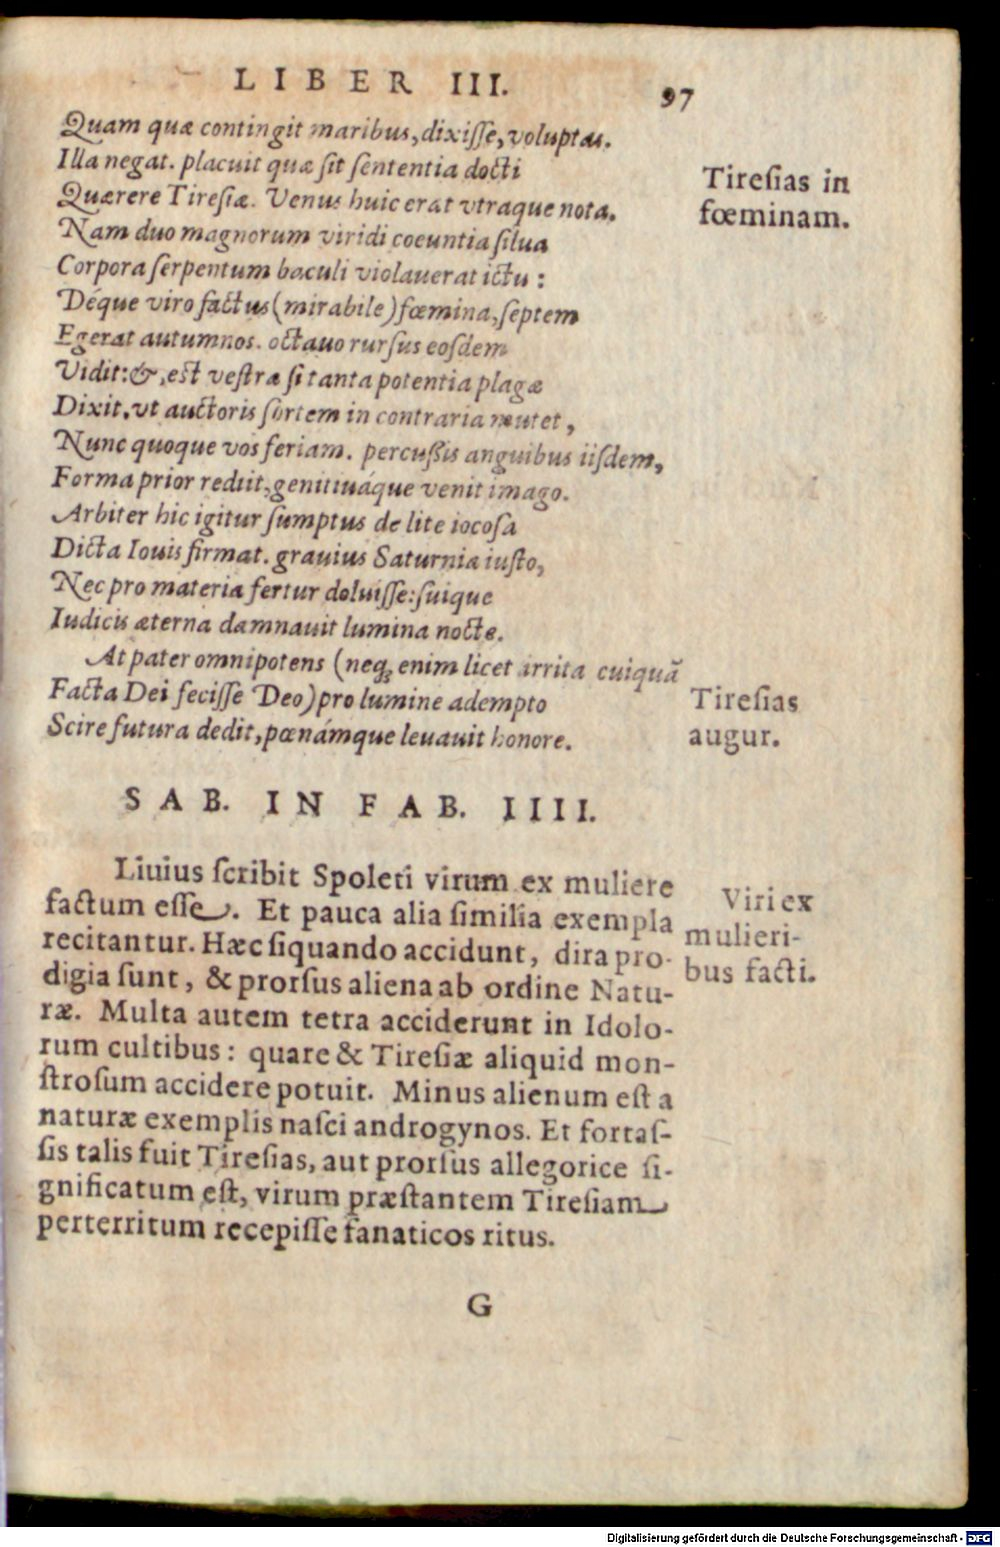 LIBER III. 97
Quam quæ contingit maribus, dixiſſe, voluptas.
Illa negat. placuit quæ ſit ſententia docti
Quærere Tireſiæ. Venus huic erat vtraque nota.
Tireſias in
fœminam.
Nam duo magnorum viridi coeuntia ſilua
Corpora ſerpentum baculi violauerat ictu:
Déque viro factus (mirabile) fœmina, ſeptem
Egerat autumnos. octauo rurſus eoſdem
Vidit: &, eſt veſtræ ſi tanta potentia plagæ
Dixit, vt auctoris ſortem in contraria mutet,
Nunc quoque vos feriam. percuſſis anguibus iiſdem,
Forma prior rediit, genitiuáque venit imago.
Arbiter hic igitur ſumptus de lite iocoſa
Dicta Iouis firmat. grauius Saturnia iuſto,
Nec pro materia fertur doluiſſe: ſuique
Iudicis æterna damnauit lumina nocte.
At pater omnipotens (neq; enim licet irrita cuiquã
Facta Dei feciſſe Deo) pro lumine adempto
Scire futura dedit, pœnámque leuauit honore.
Tireſias
augur.
SAB. IN FAB. IIII.
Liuius ſcribit Spoleti virum ex muliere
factum eſſe. Et pauca alia ſimilia exempla
recitantur. Hæc ſiquando accidunt, dira pro-
digia ſunt, & prorſus aliena ab ordine Natu-
ræ. Multa autem tetra acciderunt in Idolo-
rum cultibus: quare & Tireſiæ aliquid mon-
ſtroſum accidere potuit. Minus alienum eſt a
naturæ exemplis naſci androgynos. Et fortaſ-
ſis talis fuit Tireſias, aut prorſus allegorice ſi-
gnificatum eſt, virum præſtantem Tireſiam
perterritum recepiſſe fanaticos ritus.
Viri ex
mulieri-
bus facti.
G
Digitalisierung gefördert durch die Deutsche Forschungsgemeinschaft - DFG